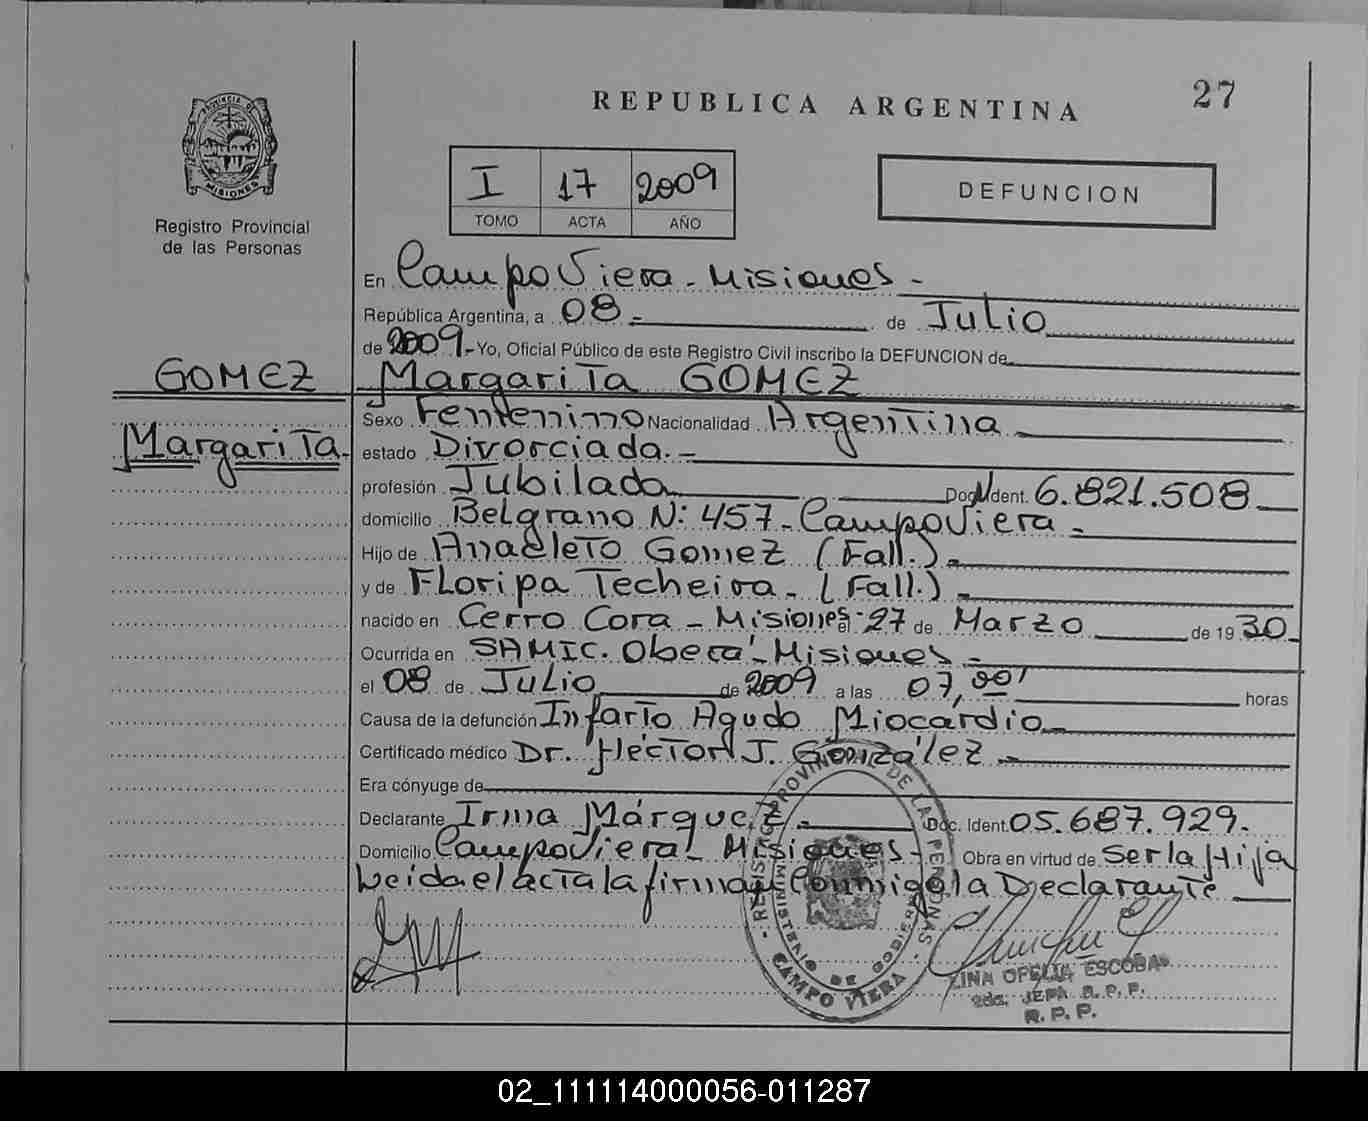 27
REPUBLICA ARGENTINA
PROVINCIA DE
MISIONES
Registro Provincial
de las Personas
I 17 2009
TOMO ACTA AÑO
DEFUNCION
En Campo Viera - Misiones -
República Argentina, a 08 - de Julio
de 2009.- Yo, Oficial Público de este Registro Civil inscribo la DEFUNCION de
GOMEZ Margarita GOMEZ
Sexo Femenino Nacionalidad Argentina
Margarita estado Divorciada. -
profesión Jubilada Doc. Ident. 6.821.508
domicilio Belgrano N: 457 - Campo Viera -
Hijo de Anacleto Gomez (Fall.) -
y de Floripa Techeira - (Fall.) -
nacido en Cerro Cora - Misiones - el 27 de Marzo de 1930
Ocurrida en SAMIC. Oberá - Misiones -
el 08 de Julio de 2009 a las 07,00' horas
Causa de la defunción Infarto Agudo Miocardio
Certificado médico Dr. Héctor J. González -
Era cónyuge de
Declarante Irma Márquez - Doc. Ident. 05.687.929.
Domicilio Campo Viera - Misiones - Obra en virtud de Ser la Hija
Leida el acta la firma Conmigo la Declarante
REGISTRO PROVINCIAL DE LAS PERSONAS
MINISTERIO DE GOBIERNO
CAMPO VIERA
LINA OFELIA ESCOBAR
2da. JEFA R.P.P.
R.P.P.
02_111114000056-011287